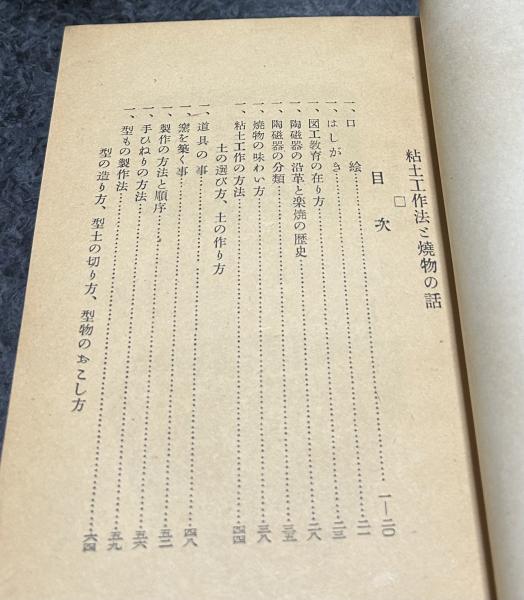 粘土工作法と燒物の話
□
目次
一、口絵……一—二〇
一、はしがき……二一
一、図工教育の在り方……二三
一、陶磁器の沿革と楽焼の歴史……二八
一、陶磁器の分類……三五
一、燒物の味わい方……三八
一、粘土工作の方法……四四
土の選び方、土の作り方
一、道具の事……四八
一、窯を築く事……五二
一、製作の方法と順序……五六
一、手ひねりの方法……五九
一、型もの製作法……六四
型の造り方、型土の切り方、型物のおこし方